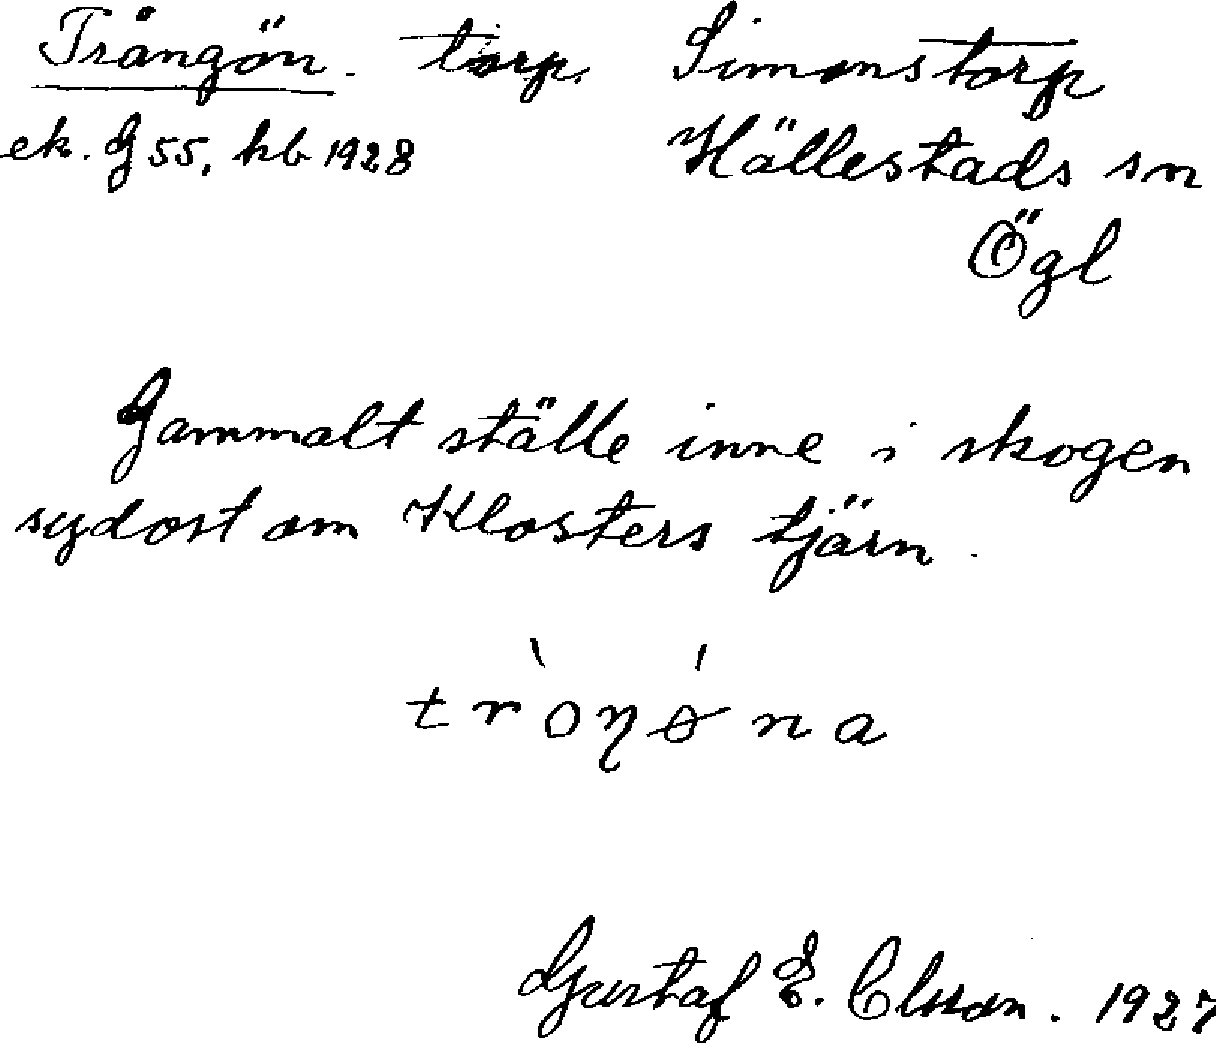 Trångön. torp. Simonstorp
ek. G 55, hb 1928 Hällestads sn
Ögl
Gammalt ställe inne i skogen
sydost om Klosters tjärn.
tr`oŋǿna
Gustaf E. Olsson. 1927